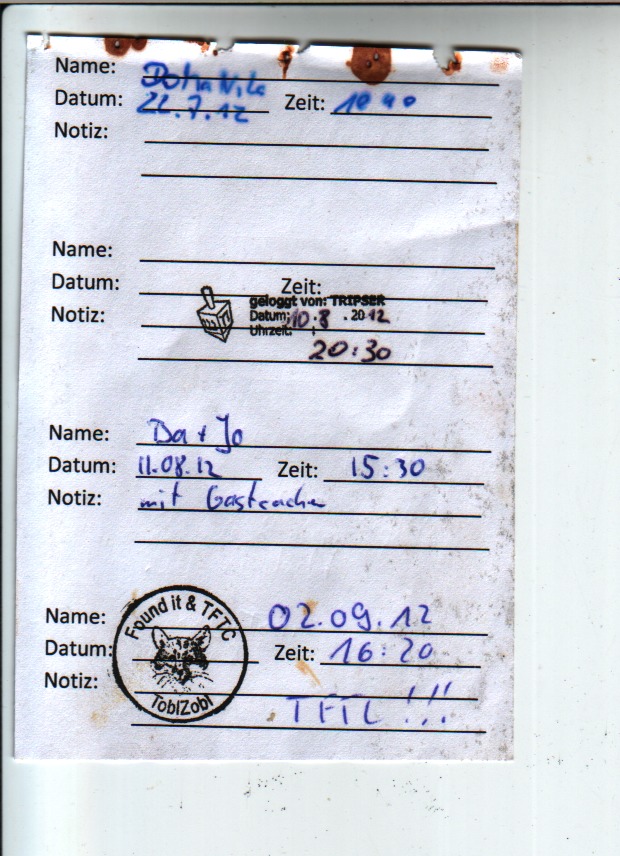 Name:
Datum: 22.7.12 Zeit:
Notiz:
Name:
Datum: Zeit:
geloggt von: TRIPSER
Notiz: Datum: 10.8 .2012
Uhrzeit: :
20:30
Name: Da + Jo
Datum: 11.08.12 Zeit: 15:30
Notiz: mit
Found it & TFTC
Name: 02.09.12
Datum: Zeit: 16:20
Notiz:
ToblZobl
TFTC !!!